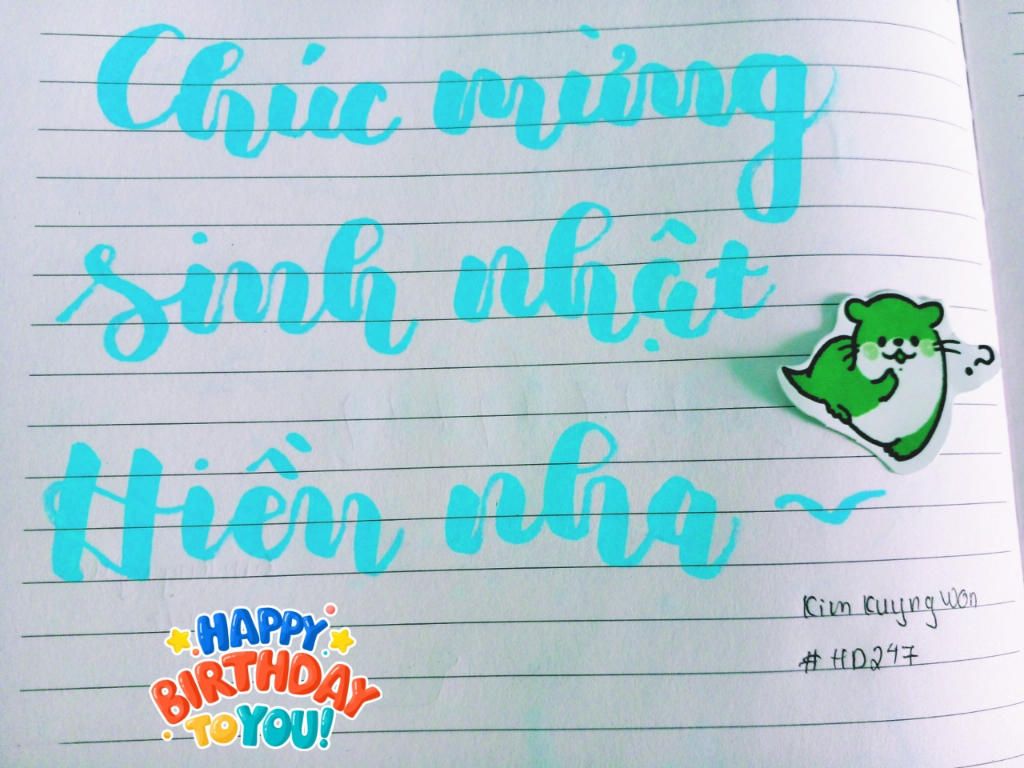 Chúc mừng
sinh nhật
Hiền nha ~
?
Kim Kuyng Won
#HD247
HAPPY
BIRTHDAY
TO YOU!